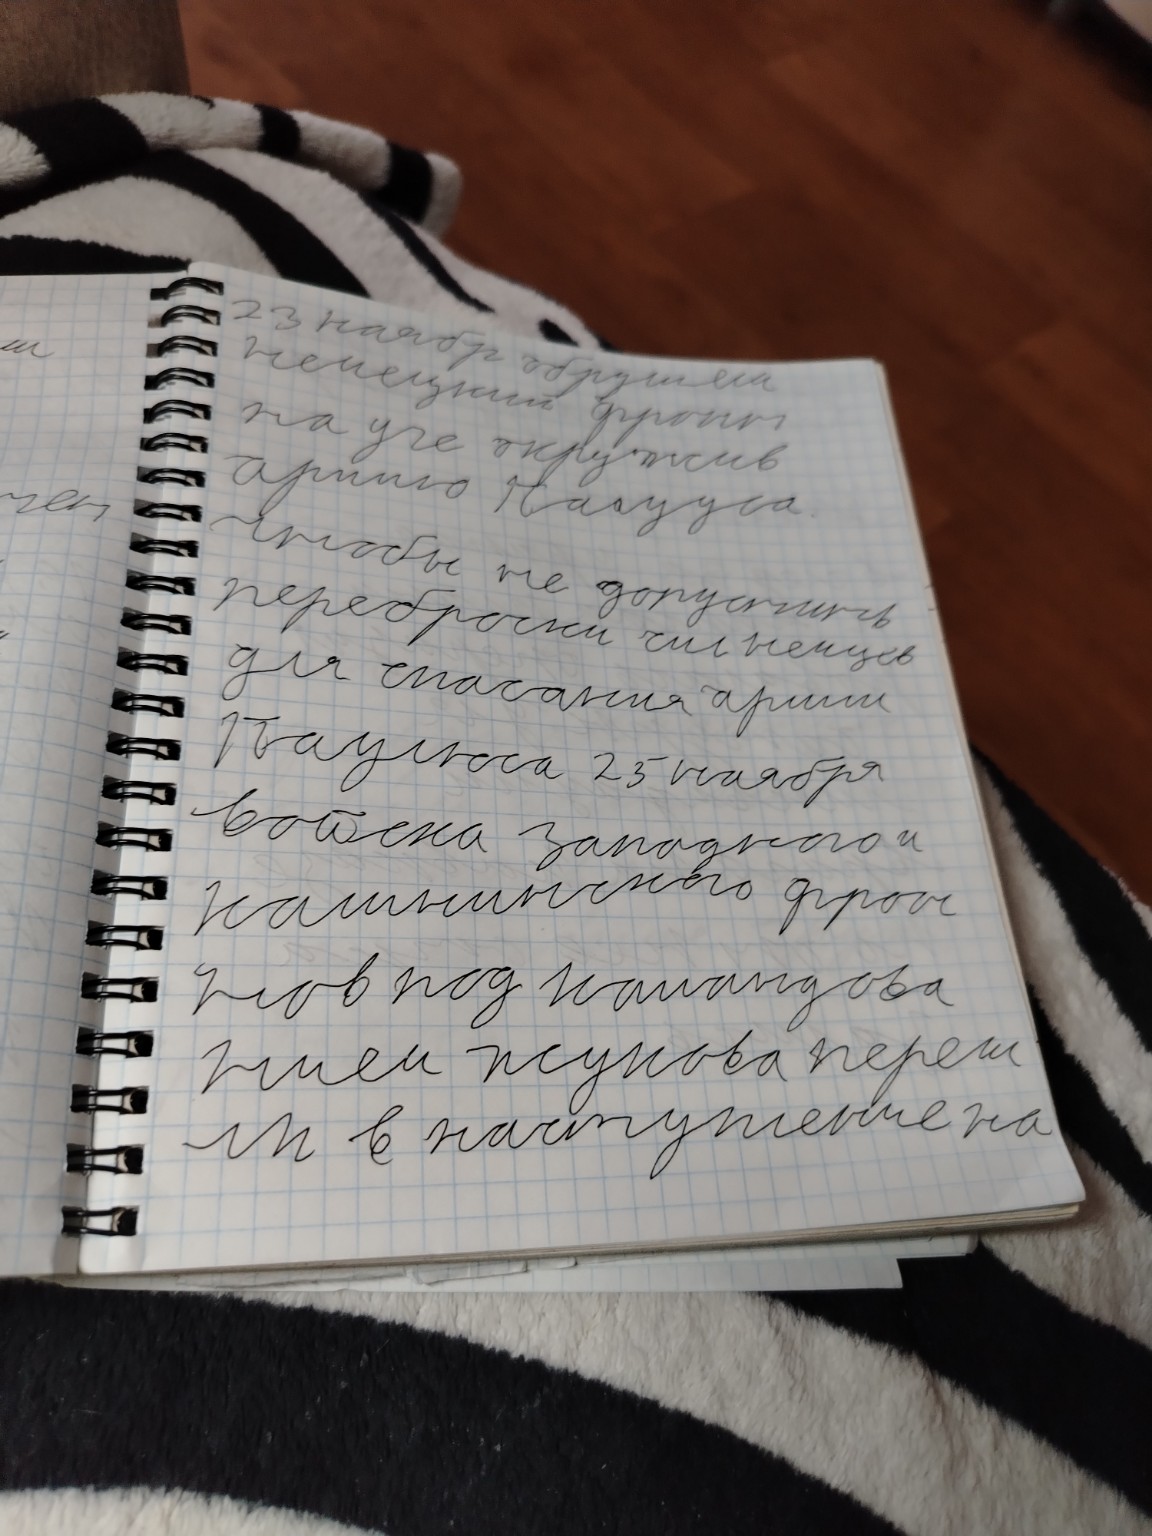 23 наябр обрушели
немецкий фронт
на уге окружив
армию Паулуса.
Чтобы не допустить
переброски сил немцев
для спасания армии
Паулюса 25 наября
войска западного и
калининского фрон
тов под командова
нием жукова переш
ли в наступление на